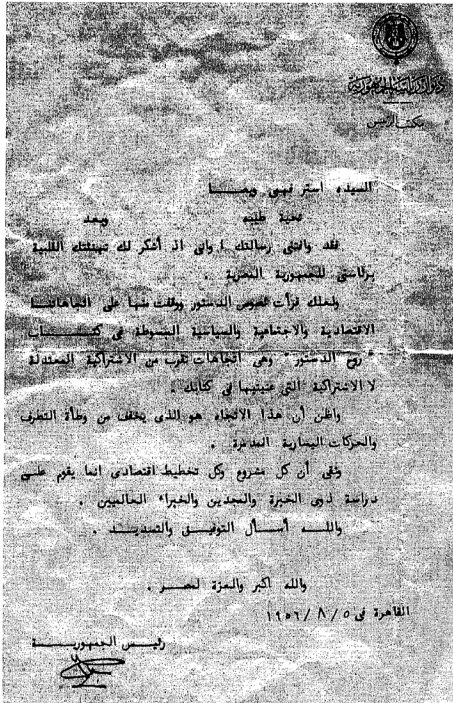 ديوان رئاسة الجمهورية
مكتب الرئيس
السيدة استر فهمي ويصا
تحية طيبة وبعد
فقد وافتني رسالتك واني اذ أشكر لك تهنئتك القلبية
برئاستي للجمهورية المصرية .
ولعلك قرأت نصوص الدستور ووقفت منها على اتجاهاتنا
الاقتصادية والاجتماعية والسياسية المبسوطة في كتاب
" روح الدستور " وهي اتجاهات تقرب من الاشتراكية المعتدلة
لا الاشتراكية التي عنيتيها في كتابك .
واظن أن هذا الاتجاه هو الذى يخفف من وطأة التطرف
والحركات اليسارية المدمرة .
وثقى أن كل مشروع وكل تخطيط اقتصادى انما يقوم على
دراسة ذوى الخبرة والمجدين والخبراء العالميين .
واللـه أسأل التوفيق والتسديد .
والله اكبر والعزة لمصر .
القاهرة في ٥ / ٨ / ١٩٥٦
رئيس الجمهورية